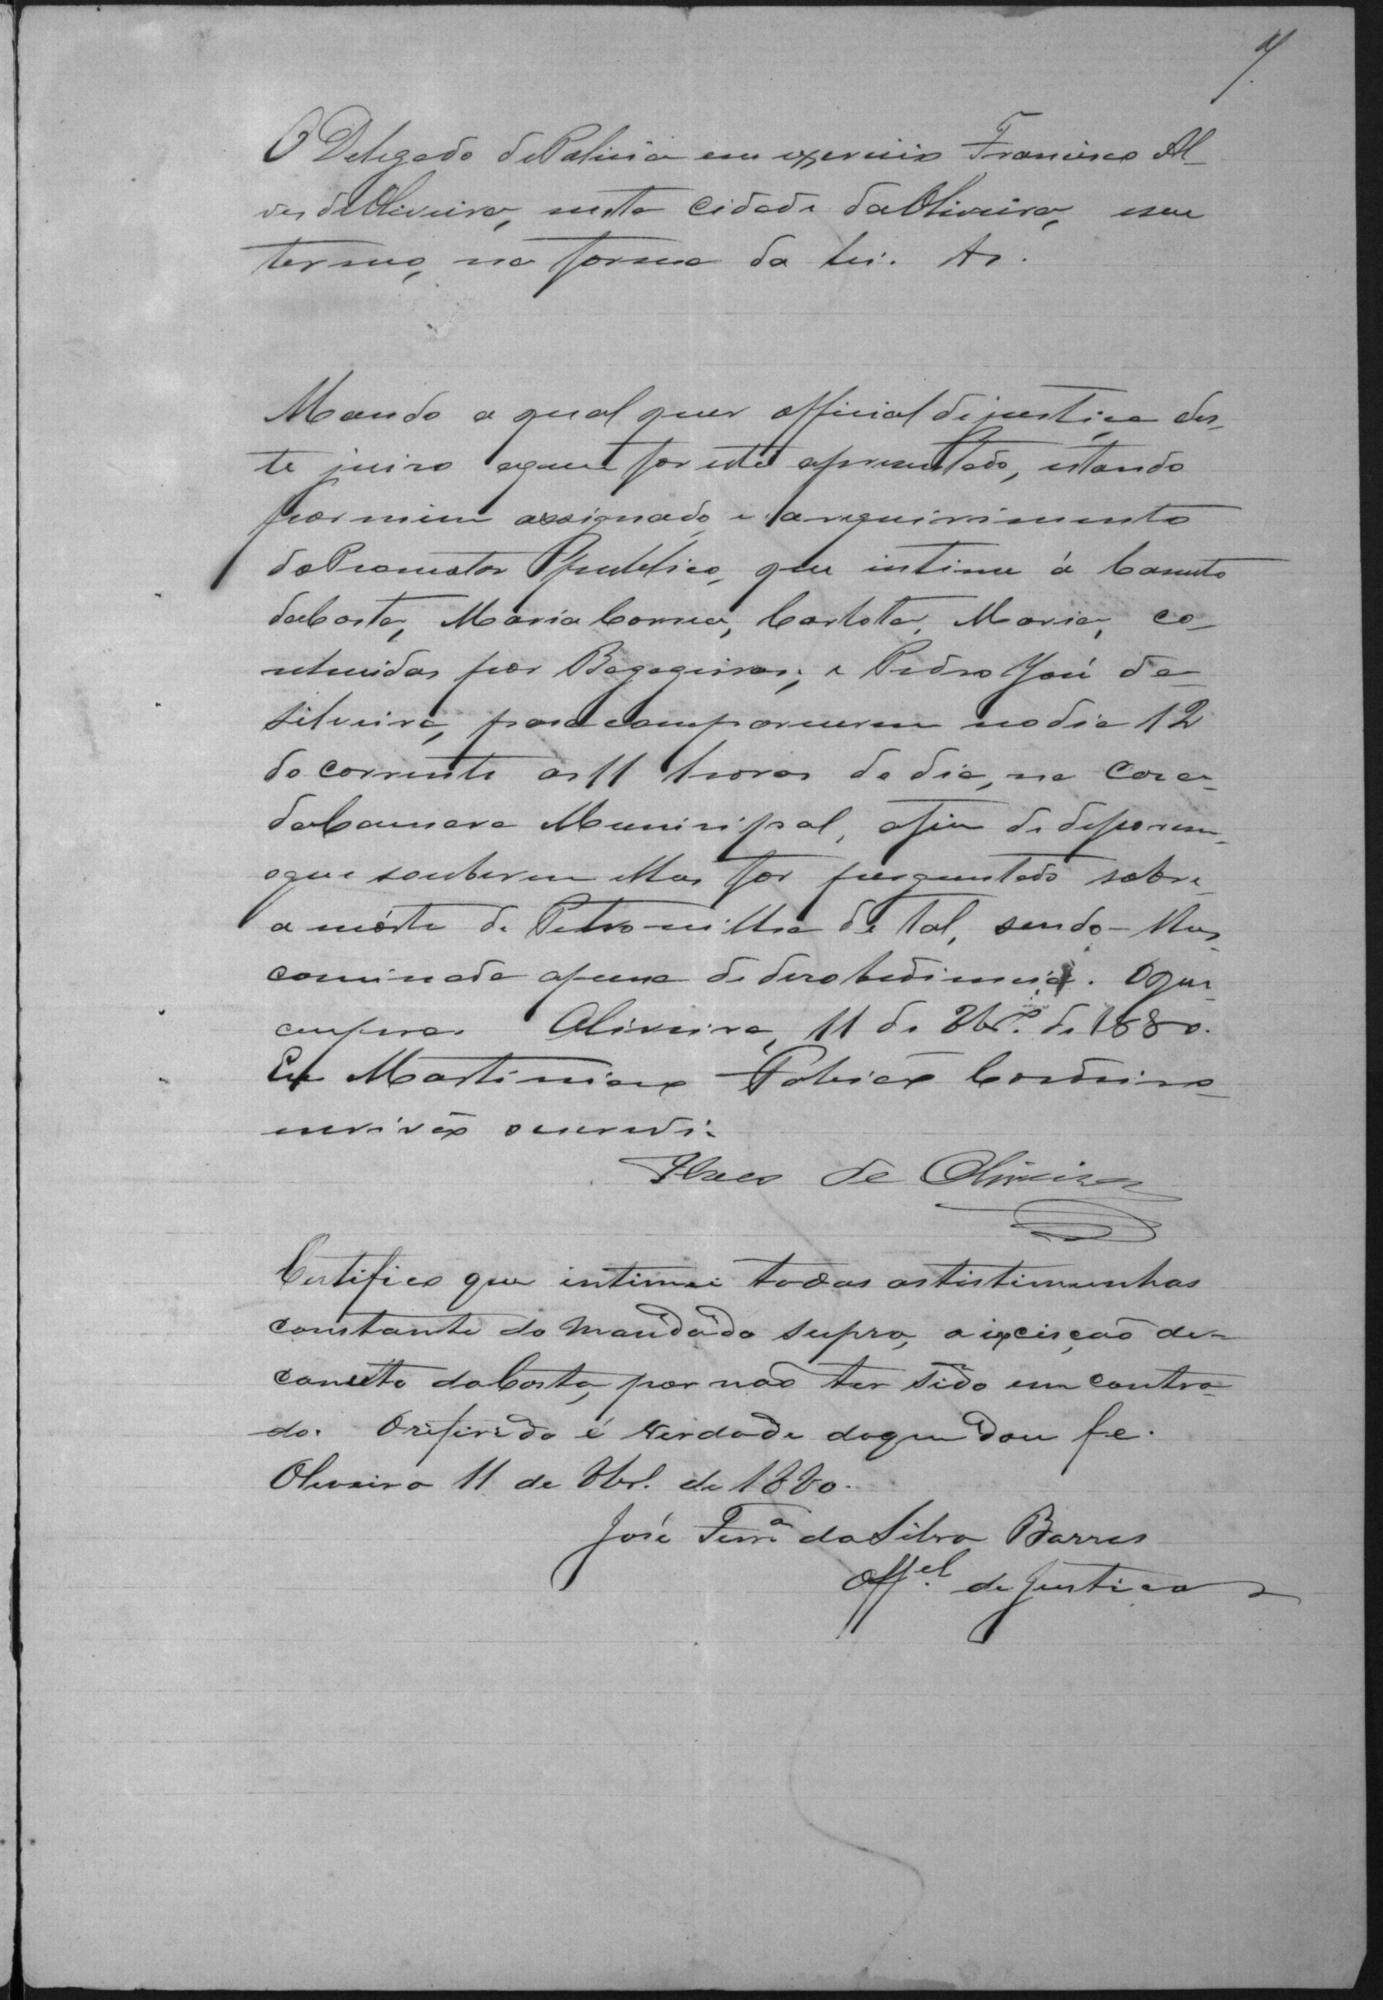 7
O Delegado de Policia em exercicio Francisco Al-
ves de Oliveira, nesta cidade da Oliveira, e seu
termo, na forma da lei. Et.
Mando a qual quer official de justiça des-
te juizo a quem for este apresentado, estando
por mim assignado, e a requirimento
do Promotor Publico, que intime á Canuto
da Costa, Maria Correa, Carlota, Maria, co-
nhecidas por Bagageiras; e Pedro José da
Silveira, para comparecerem no dia 12
do corrente as 11 horas do dia, na Casa
da Camara Municipal, afim de deporem
o que souberem e lhes for perguntado sobre
a morte de Petronilha de tal, sendo-lhes
cominada a pena de desobediencia. O que
cumpra. Oliveira, 11 de 8br.º de 1880.
Eu Martiniano Cordeiro
escrivão o escrevi.
Alves de Oliveira
Certifico que intimei todas as tistimunhas
constante do mandado supra, a exceiçaõ de
canuto da Costa, por naõ ter sido em contra-
do. O riferido é verdade do que dou fe.
Oliveira 11 de 8br.º de 1880.
José Ferrª da Silva Barros
Offel. de Justiça